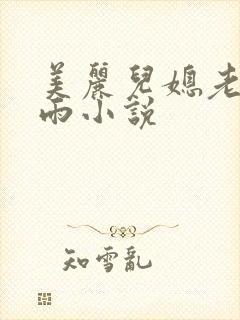 美麗兒媳老
雨小説
知雪亂